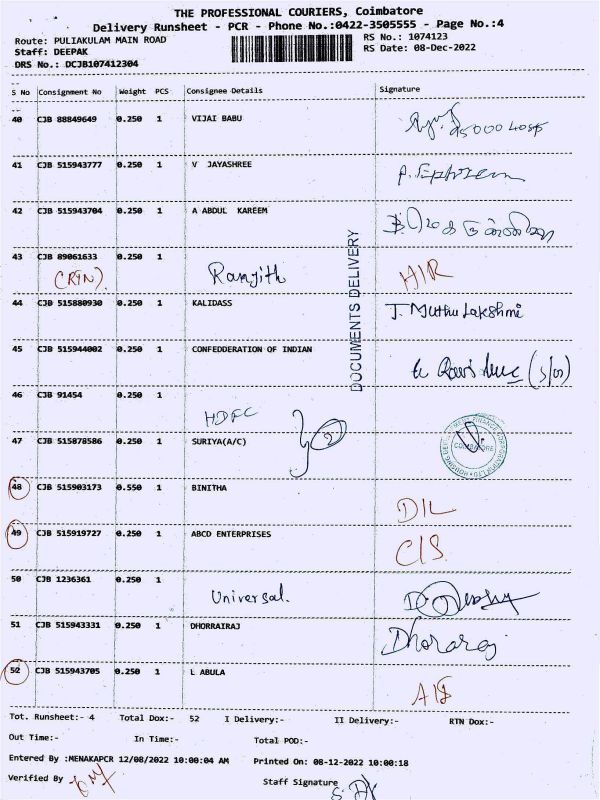 THE PROFESSIONAL COURIERS, Coimbatore
Delivery Runsheet - PCR - Phone No.:0422-3505555 - Page No.:4
Route: PULIAKULAM MAIN ROAD RS No.: 1074123
Staff: DEEPAK RS Date: 08-Dec-2022
DRS No.: DCJB107412304
S No Consignment No Weight PCS Consignee Details Signature
40 CJB 88849649 0.250 1 VIJAI BABU
41 CJB 515943777 0.250 1 V JAYASHREE
42 CJB 515943704 0.250 1 A ABDUL KAREEM
43 CJB 89061633 0.250 1 Ranjith H/R
(RTN)
DOCUMENTS DELIVERY
44 CJB 515880930 0.250 1 KALIDASS J. Muthu Lakshmi
45 CJB 515944002 0.250 1 CONFEDDERATION OF INDIAN
46 CJB 91454 0.250 1
HDFC
47 CJB 515878586 0.250 1 SURIYA(A/C)
COIMBATORE
48 CJB 515903173 0.550 1 BINITHA D/L
49 CJB 515919727 0.250 1 ABCD ENTERPRISES C/S
50 CJB 1236361 0.250 1
Universal.
51 CJB 515943331 0.250 1 DHORRAIRAJ Dhoraraj
52 CJB 515943705 0.250 1 L ABULA
Tot. Runsheet:- 4 Total Dox:- 52 I Delivery:- II Delivery:- RTN Dox:-
Out Time:- In Time:- Total POD:-
Entered By :MENAKAPCR 12/08/2022 10:00:04 AM Printed On: 08-12-2022 10:00:18
Verified By Staff Signature